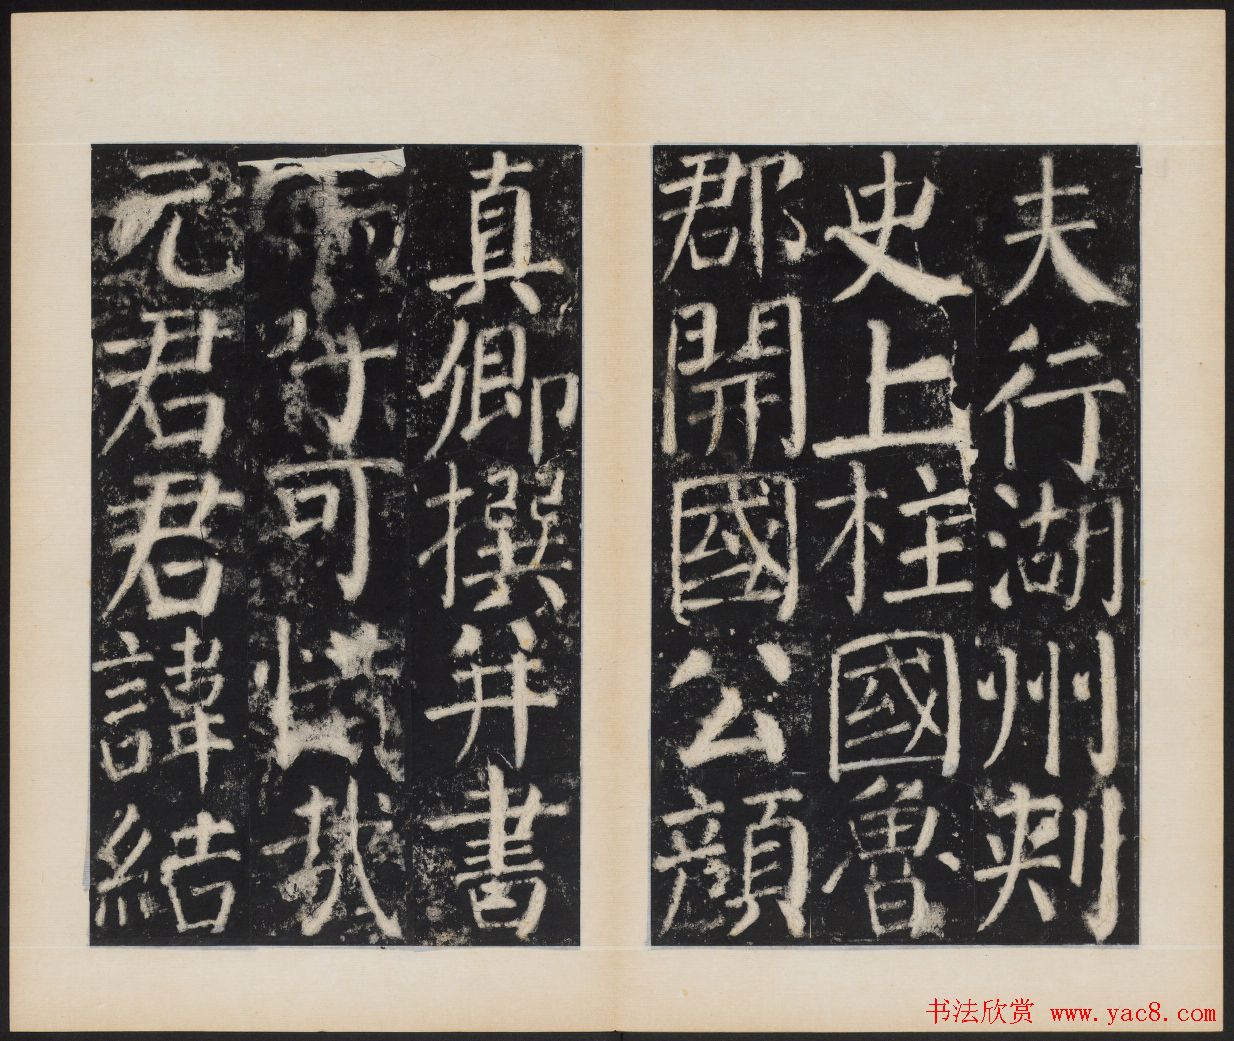 夫行湖州刾
史上柱國魯
郡開國公顏
真卿撰并書
可惜哉
元君君諱結
书法欣赏 www.yac8.com